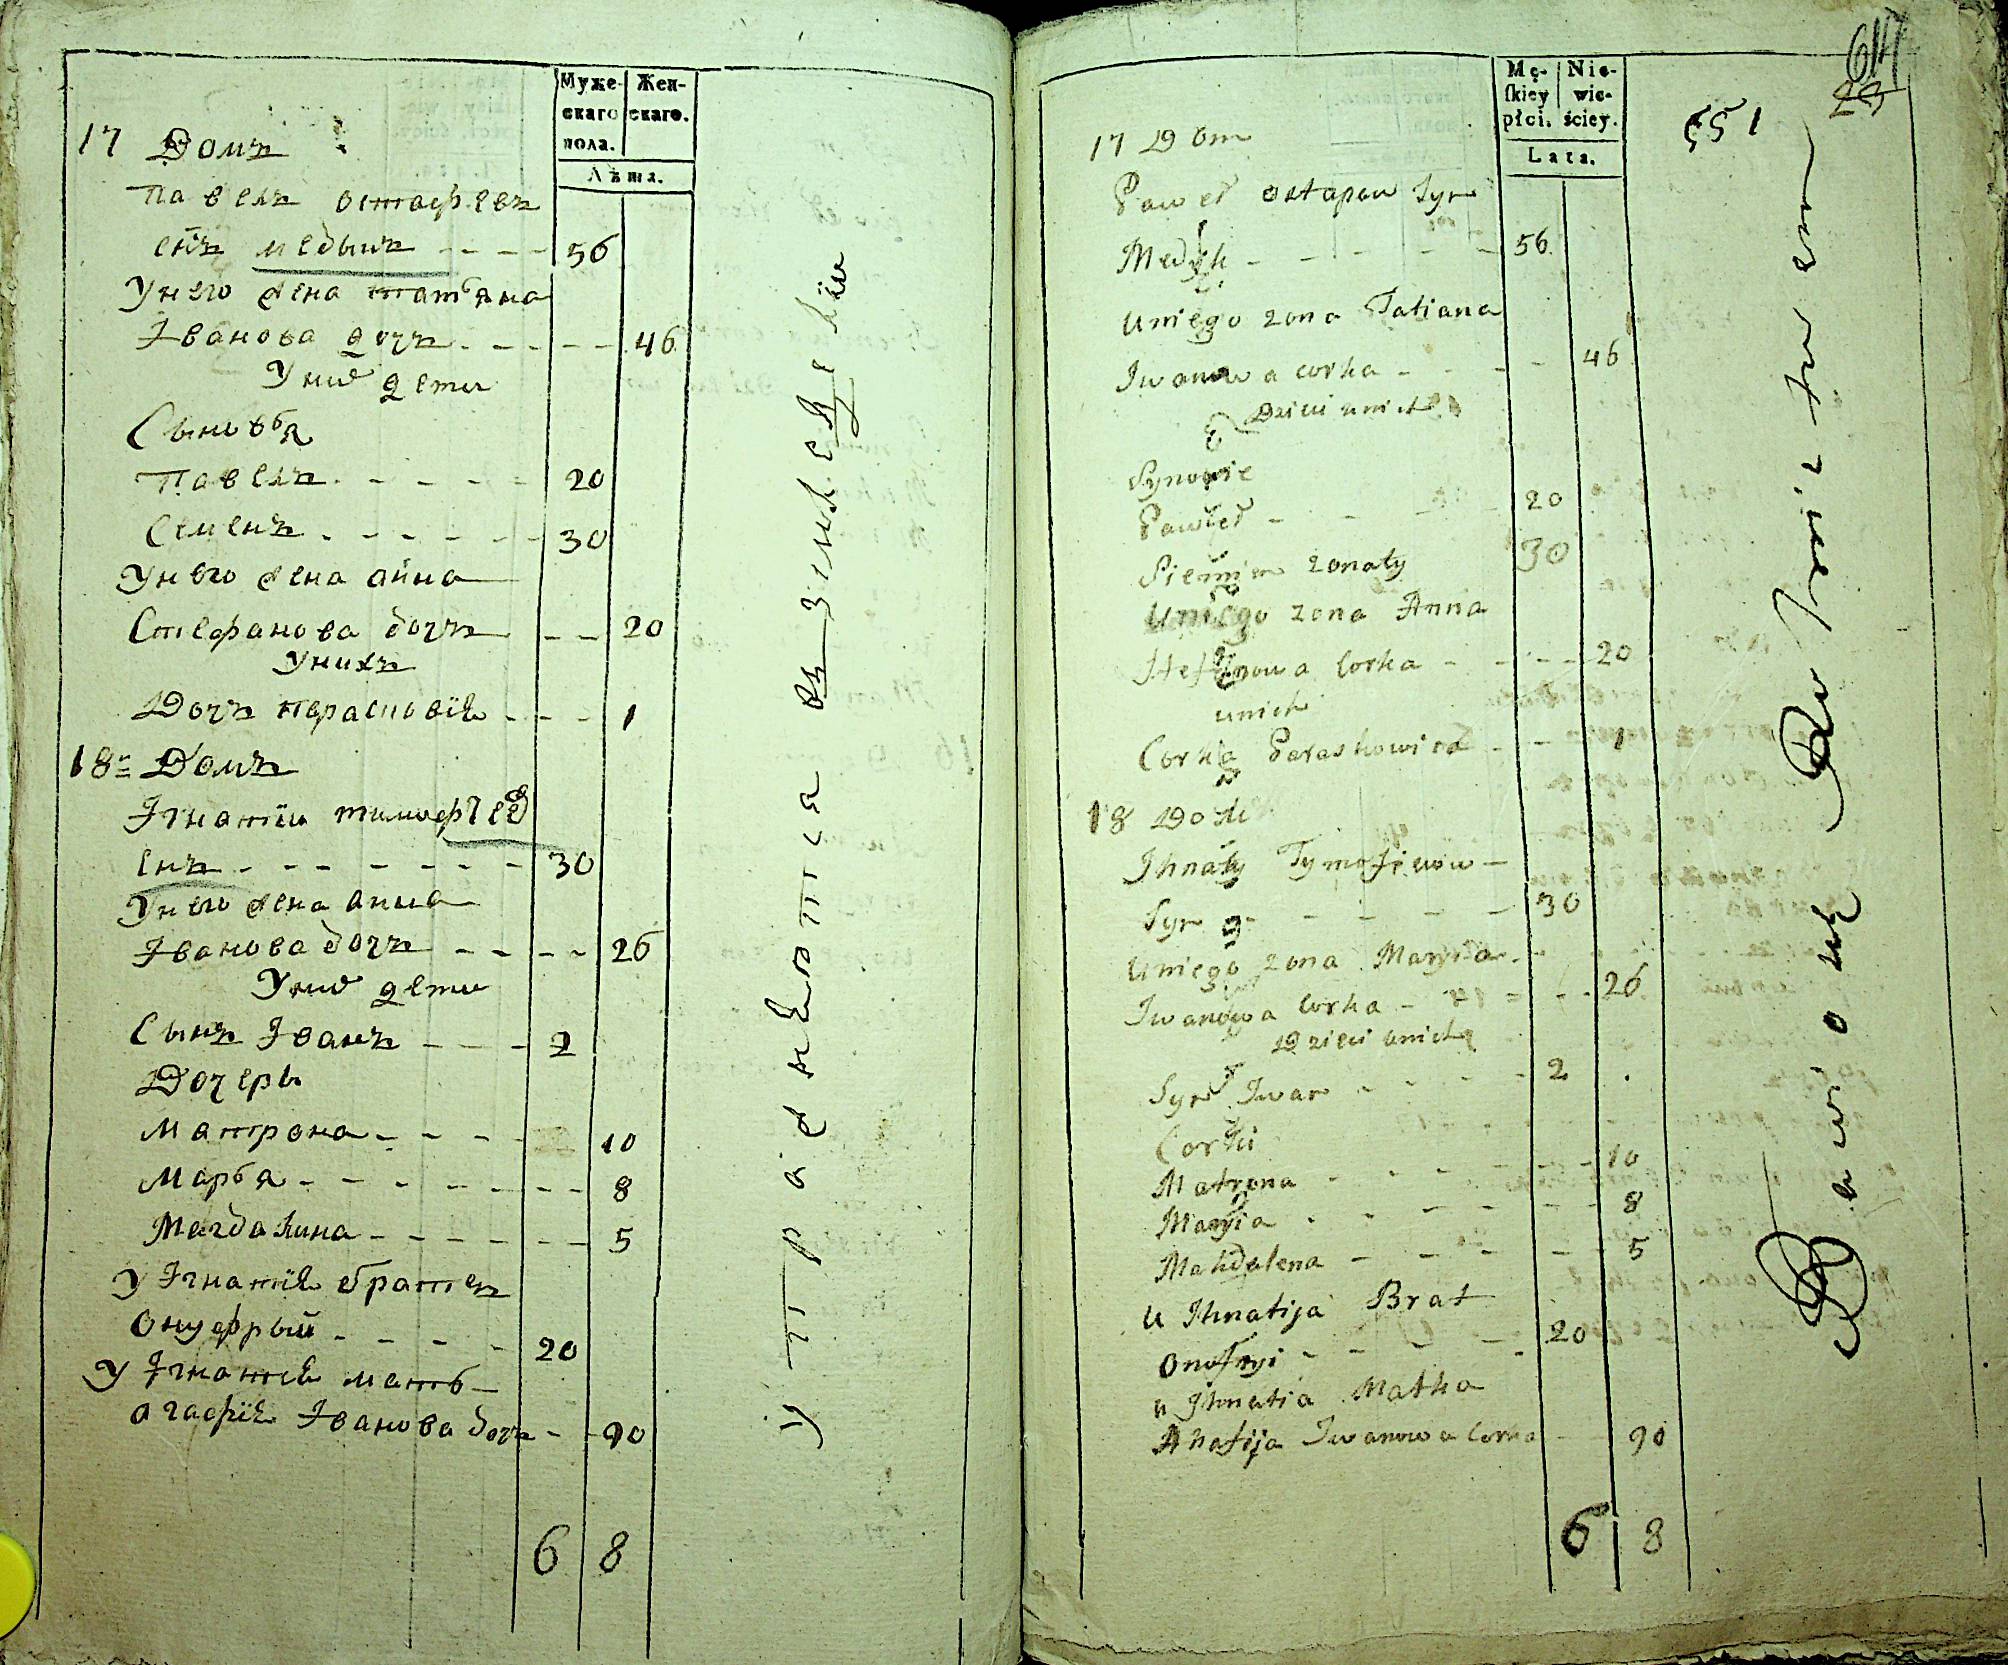 Муже-
скаго
пола.
Жен-
скаго.
Лѣта.
17 Домъ
Павелъ Остафѣевъ
снъ Медыкъ - - - - 56
У него жена Татьяна
Іванова дочъ - - - - - 46
У нихъ дети
Сыновья
Павелъ - - - - - 20
Семенъ - - - - - - 30
У него жена Анна
Стефанова дочъ - - 20
У нихъ
Дочъ Парасковія - - - 1
18 Домъ
Ігнатіи Тимофѣевъ
снъ - - - - - - - 30
У него жена Анна
Іванова дочъ - - - - 26
У нихъ дети
Сынъ Іванъ - - - 2
Дочерь
Матрона - - - - 10
Марья - - - - - - - 8
Магдалина - - - - - - 5
У Ігнатія братъ
Онуфрый - - - - - 20
У Ігнатія мать
Агафія Іванова дочъ - - 90
6 8
Mę-
skiey
płci.
Nie-
wie-
ściey.
Lata.
17 Dom
Paweł Ostapow Syn
Medyk - - - - - 56
Uniego zona Tatiana
Iwanowa corka - - - - 46
Dzieci unich
Synowie
Paweł - - - - 20
Siemien zonaty 30
Uniego zona Anna
Stefanowa Corka - - - - 20
unich
Corka Paraskowiia - - - 1
18 Dom
Ihnaty Tymofiiewow -
Syn - - - - - 30
Uniego zona Maryia -
Iwanowa Corka - - - - 26
Dzieci unich
Syn Iwan - - - - - 2
Corki
Matrona - - - - - - 10
Maryia - - - - - - 8
Mahdalena - - - - - 5
U Ihnatija Brat
Onofryi - - - - - 20
u Ihnatia Matka
Ahafija Iwanowa Corka - - 90
6 8